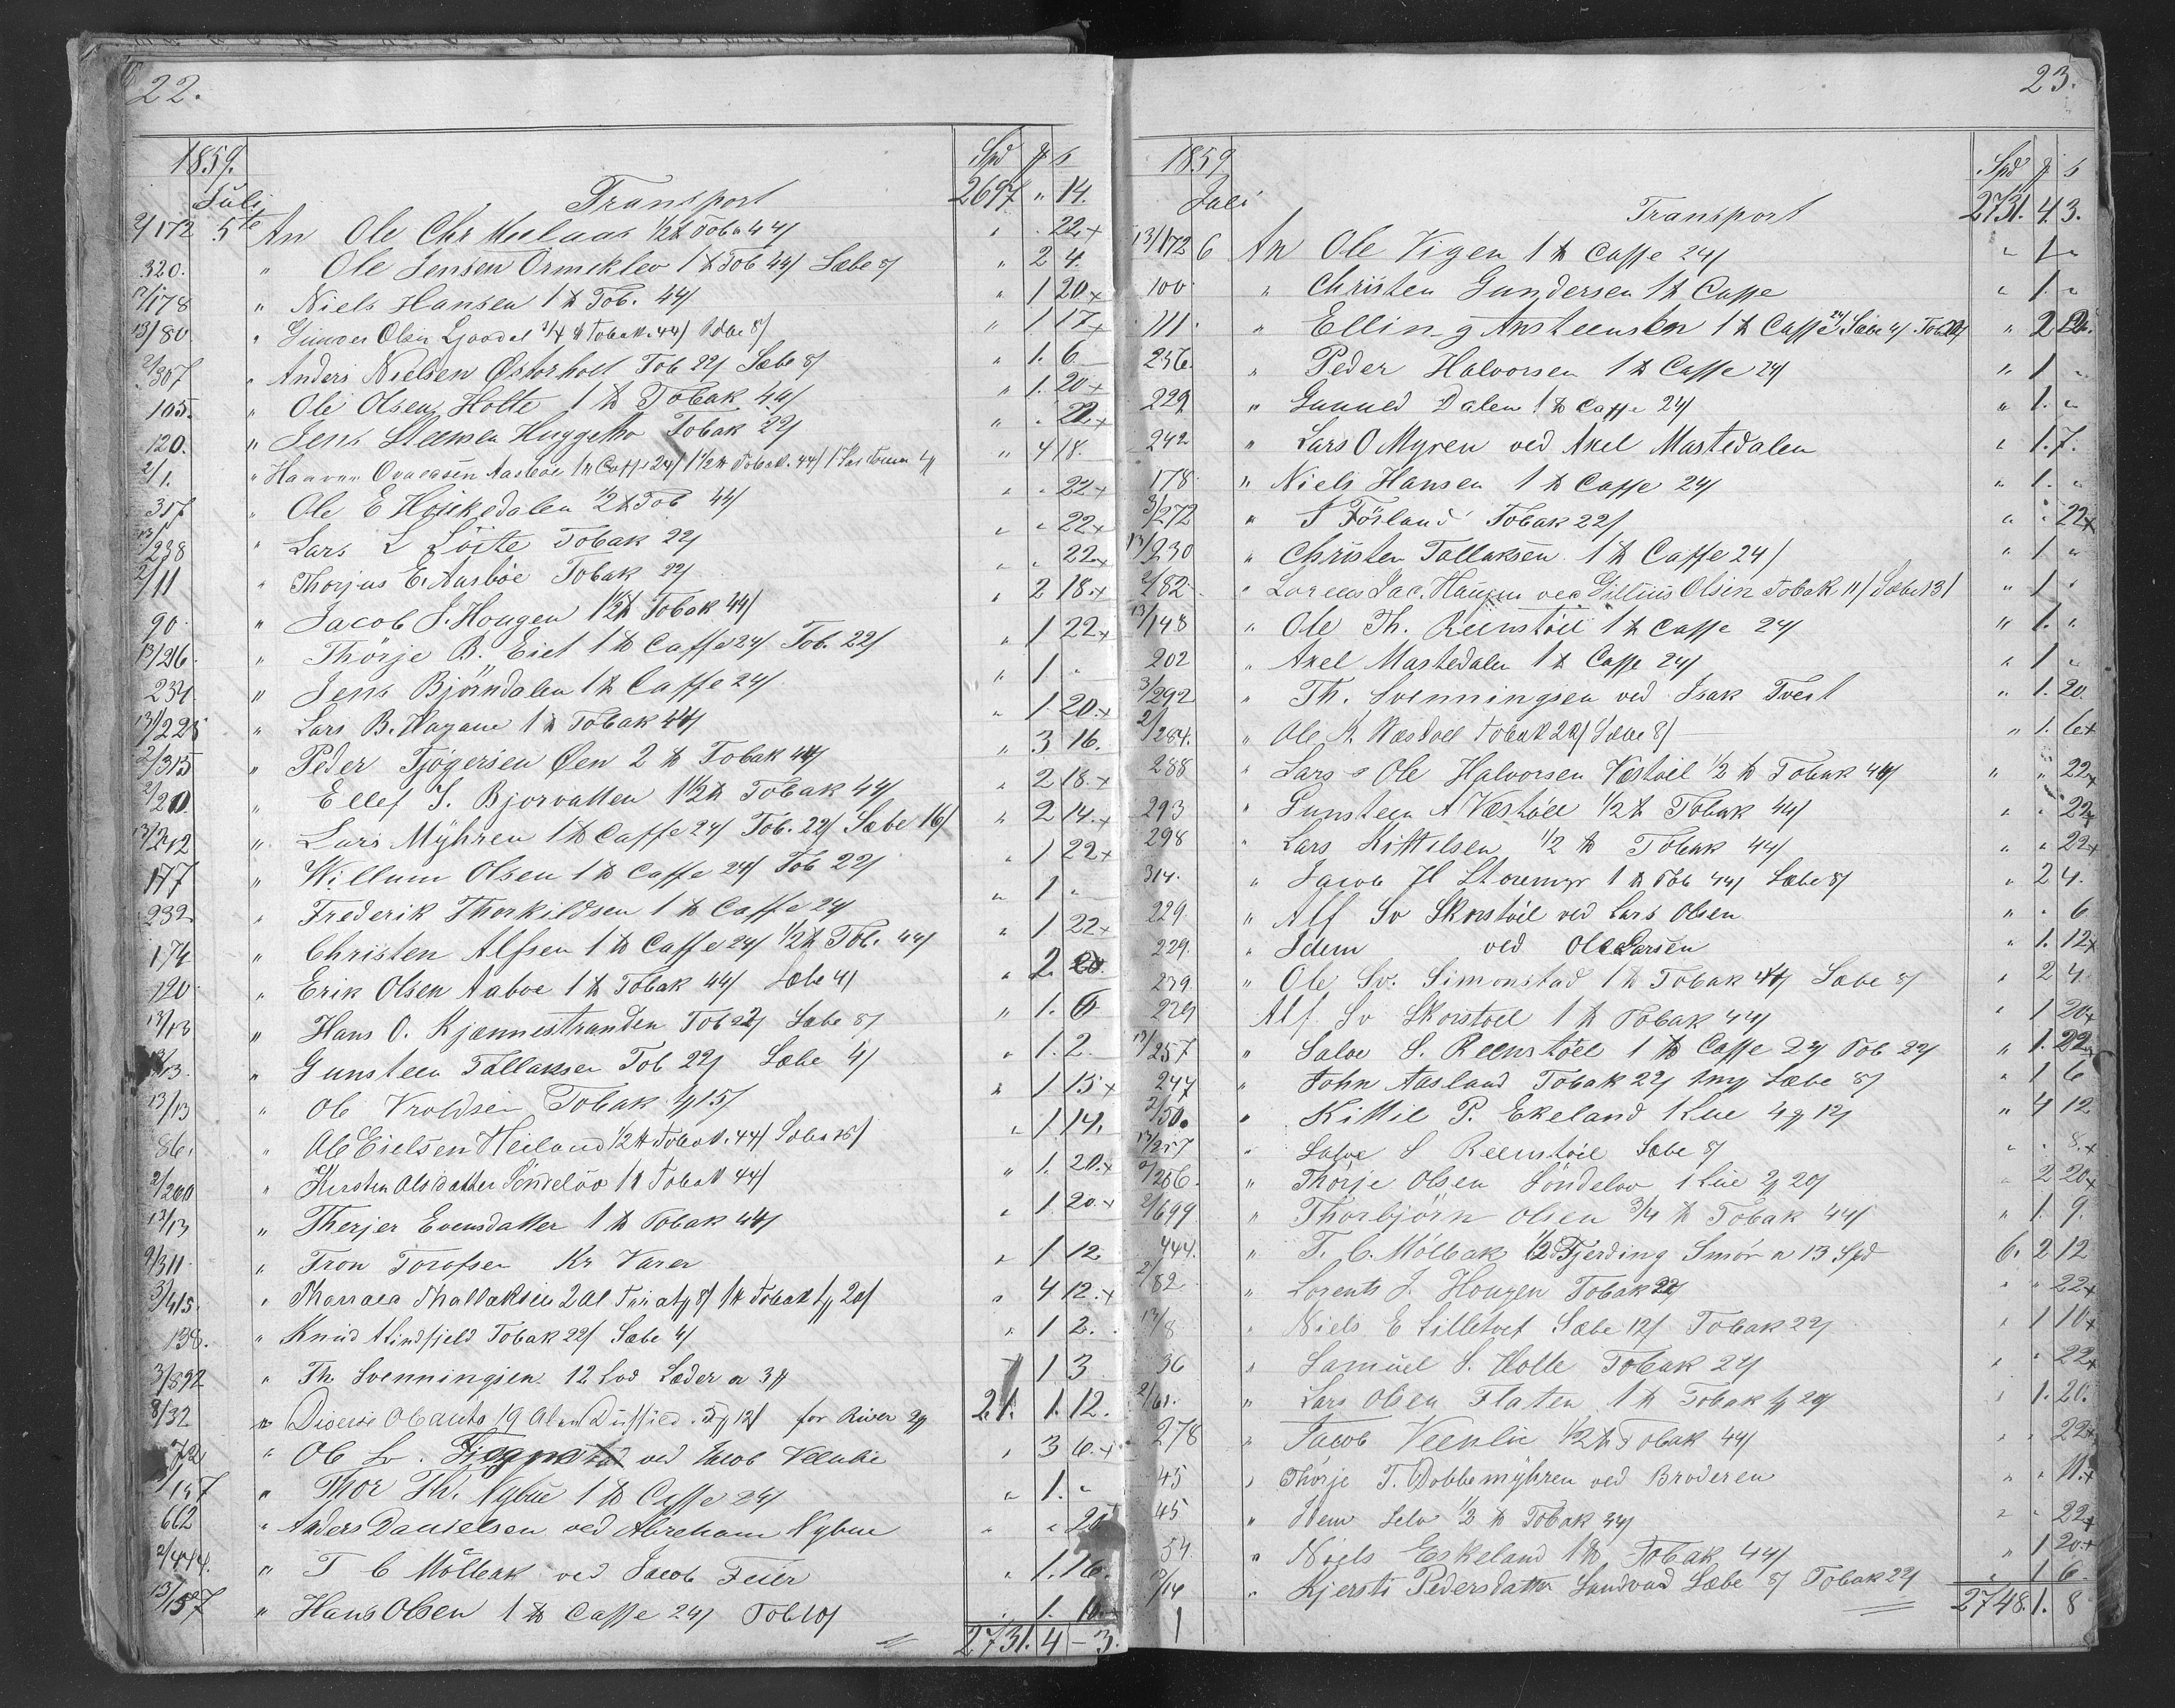 22.
1859. Spd ƒ s
Juli Transport 2697 " 14.
2/172 5te An Ole Chr Meelaas 1/2 ℔ Toba 44/ " . 22+
320. " Ole Jensen Ormeklev 1 ℔ Tob 44/ Sæbe 8/ " 2 4.
12/178 " Niels Hansen 1 ℔ Tob. 44/ " 1 20+
13/80 " Gunder Olsen 3/4 ℔ Tobak 44/ Sæbe 8/ " 1 17+
2/307 " Anders Nielsen Østerholt Tob 22/ Sæbe 8/ " 1. 6
105. " Ole Olsen Holte 1 ℔ Tobak 44/ " 1. 20+
120. " Jens Steensen Tobak 22/ " . 22+
2/1. " Aasbøe 1 ℔ Caffe 24/ 1 1/2 ℔ Tobak 44/ " 4 18.
317 " Ole E 1/2 ℔ Tob 44/ " " 22+
13/238 " Lars L Löite Tobak 22/ " " 22+
2/11 " Thorjus E. Aasbøe Tobak 22/ " " 22+
90 " Jacob J. Hougen 1 1/2 ℔ Tobak 44/ " 2 18+
13/216 " Thörje B. Eiet 1 ℔ Caffe 24/ Tob. 22/ " 1 22+
234 " Jens Björndalen 1 ℔ Caffe 24/ " 1 "
13/225 " Lars B. Hagane 1 ℔ Tobak 44/ " 1 20+
2/315 " Peder Tjøgersen Øen 2 ℔ Tobak 44/ " 3 16.
2/20 " Ellef S. Bjorvatten 1 1/2 ℔ Tobak 44/ " 2 18+
13/212 " Lars Mÿhren 1 ℔ Caffe 24/ Tob. 22/ Sæbe 16/ " 2 14+
177 " Willum Olsen 1 ℔ Caffe 24/ Tob 22/ " 1 22+
232 " Frederik Thorkildsen 1 ℔ Caffe 24/ " 1 "
174 " Christen Alfsen 1 ℔ Caffe 24/ 1/2 ℔ Tob. 44/ " 1 22+
120 " Erik Olsen Aaboe 1 ℔ Tobak 44/ Sæbe 4/ " 2
13/13 " Hans O. Kjænnestranden Tob 22/ Sæbe 8/ " 1. 6
13/13. " Gunsteen Tallaksen Tob 22/ Sæbe 4/ " 1. 2.
13/13 " Ole Vroldsen Tobak 1ƒ 15/ " 1 15+
86. " Ole Eielsen Heiland 1/2 ℔ Tobak 44/ Sæbe " 1 14.
2/200 " Kirsten Olsdatter Söndeløv 1 ℔ Tobak 44/ " 1. 20+
13/13 " Therjer Evensdatter 1 ℔ Tobak 44/ " 1 20+
2/311 " Tron Torofsen Kr Varer " 1 12
3/415. " Thallaksen 2 Al 8/ 1 ℔ Tobak 1ƒ 20/ " 4 12+
138. " Knud A Lindfjeld Tobak 22/ Sæbe 4/ " 1 2.
3/892 " Th. Svenningsen 12 Lod Læder a 3ƒ 1 3
8/32 " Diverse 19 Al 5ƒ 12/ for River 2ƒ 21. 1. 12.
72 " Ole Sv. ved Jacob Veenlie " 3 6+
147 " Thor Th. Nybue 1 ℔ Caffe 24/ " 1. "
662 " Anders Danielsen ved Abraham Nybue " " 20
2/444. " T C Mölbak ved Jacob Feier " 1. 16.
13/157 " Hans Olsen 1 ℔ Caffe 24/ Tob 10/ " 1. 10+
2731. 4 – 3.
23.
1859 Spd ƒ s
Juli Transport 2731. 4. 3.
13/172 6 An Ole Vigen 1 ℔ Caffe 24/ " 1 "
100 " Christen Gundersen 1 ℔ Caffe " 1. "
111. " Elling Ansteensen 1 ℔ Caffe 24/ Sæbe 4/ Tob " 2
236. " Peder Halvorsen 1 ℔ Caffe 24/ " 1 "
229 " Gunned Dalen 1 ℔ Caffe 24/ " 1. "
242 " Lars O Myren ved Axel Mastedalen " 1. 7.
178. " Niels Hansen 1 ℔ Caffe 24/ " 1. "
3/272 " T Försland Tobak 22/ " " 22+
13/230 " Christen Tallaksen 1 ℔ Caffe 24/ " 1 "
2/82. " Lorens Jac. Haugen ved Olsen Tobak 11/ Sæbe 13/ " 1 "
13/148 " Ole Th. Reenstöil 1 ℔ Caffe 24/ " 1. "
202 " Axel Mastedalen 1 ℔ Caffe 24/ " 1 "
3/292 " Th. Svenningsen ved Isak Tveit " 1. 20.
2/284. " Ole K. Væstöel Tobak 22/ Sæbe 8/ " 1. 6+
288 " Lars s Ole Halvorsen Væstöel 1/2 ℔ Tobak 44/ " " 22+
293 " Gunsteen A Væstöel 1/2 ℔ Tobak 44/ " . 22+
298 " Lars Kittelsen 1/2 ℔ Tobak 44/ " " 22+
314. " Jacob H Storemyr 1 ℔ Tob 44/ Sæbe 8/ " 2 4.
229. " Alf Sv Skorstöil ved Lars Olsen " . 6
229. " Idem ved Ole Larsen " 1. 12+
239. " Ole Sv. Simonstad 1 ℔ Tobak 44/ Sæbe 8/ " 2 4.
229 Alf Sv Skorstoel 1 ℔ Tobak 44/ " 1 20+
13/257 " Salve S. Reenstöel 1 ℔ Caffe 24/ Tob 22/ " 1. 22+
247 " John Aasland Tobak 22/ Sæbe 8/ " 1 6
2/50. " Kittil P. Ekeland 1 Lue 4ƒ 12/ " 4 12
13/257 " Salve S Reenstöil Sæbe 8/ " . 8+
2/256. " Thörje Olsen Söndelov 1 Lue 2ƒ 20/ " 2 20+
2/699 " Thorbjörn Olsen 3/4 ℔ Tobak 44/ " 1. 9.
444. " T. C. Mölbak 1/2 Fjerding Smör a 13 Spd 6. 2 12
2/82 " Lorents J. Hougen Tobak 22/ " " 22+
13/8 " Niels E Lilletvet Sæbe 12/ Tobak 22/ " 1 10+
36 " Samuel S. Holte Tobak 22/ " " 22+
2/61. " Lars Olsen Flaten 1 ℔ Tobak 1ƒ 20/ " 1. 20.
278 " Jacob Veenlie 1/2 ℔ Tobak 44/ " " 22+
45 " Thörje T. Dobbemÿhren ved Broderen " " 11+
45 " Idem Selv 1/2 ℔ Tobak 44/ " " 22+
54. " Niels Eskeland 1 ℔ Tobak 44/ " 1 20+
13/14 " Kjersti Pedersdatter Sandvad Sæbe 8/ Tobak 22/ " 1 6.
2748. 1. 8